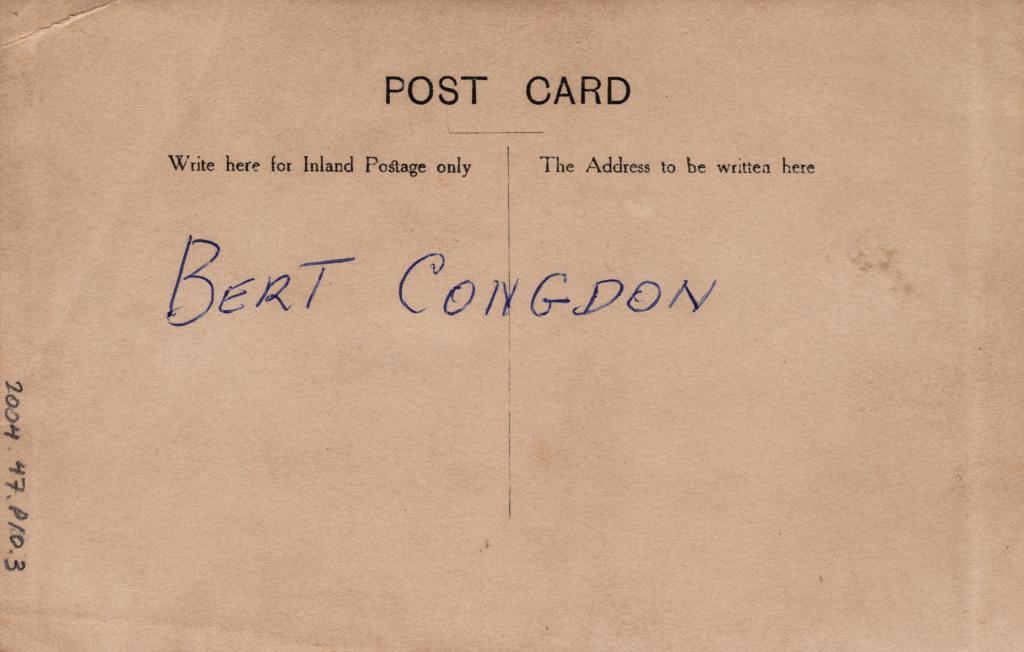 POST CARD
Write here for Inland Postage only
The Address to be written here
BERT CONGDON
2004.47.P10.3